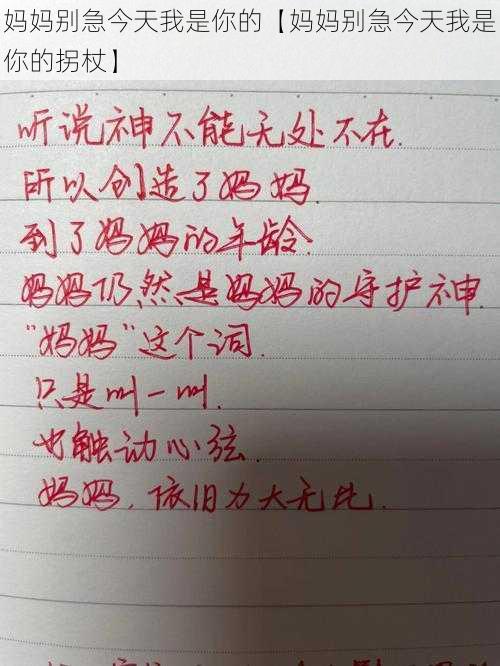 妈妈别急今天我是你的【妈妈别急今天我是
你的拐杖】
听说神不能无处不在.
所以创造了妈妈.
到了妈妈的年龄.
妈妈仍然是妈妈的守护神.
“妈妈”这个词.
只是叫一叫.
也触动心弦.
妈妈，依旧力大无比.